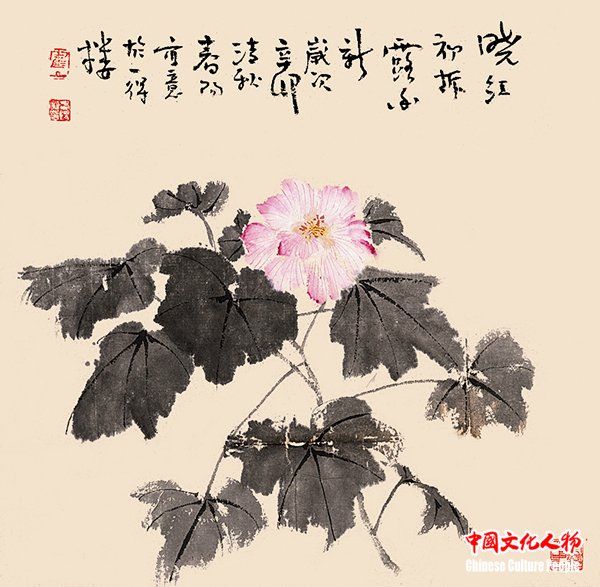 晓红
初拆
露香
新
歲次
辛卯
清秋
春阳
寫意
於一得
楼
中國文化人物
Chinese Culture People